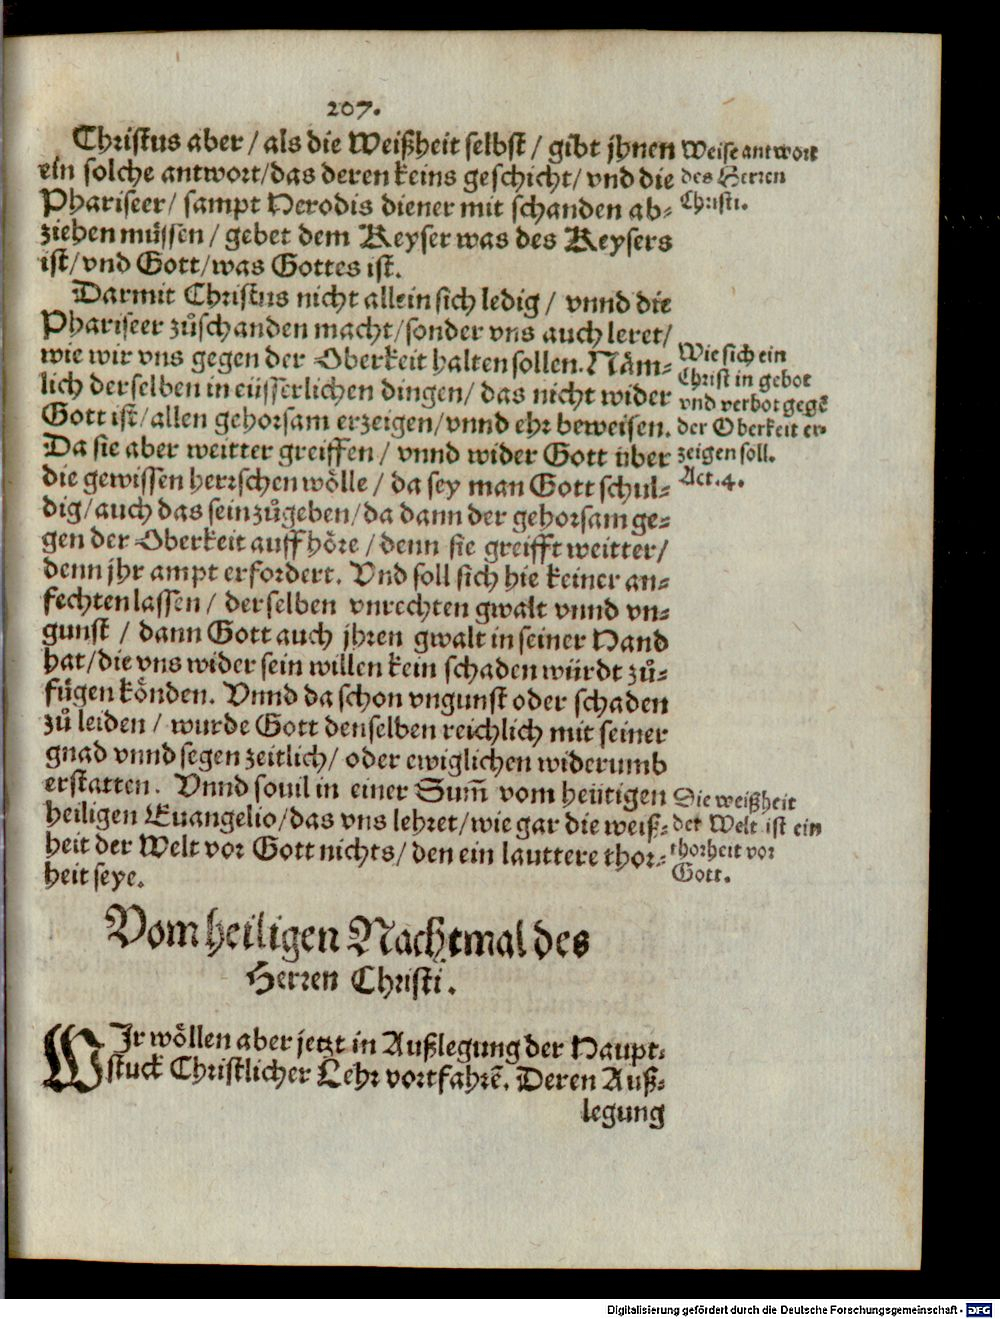 207.
Christus aber / als die Weißheit selbst / gibt jhnen
ein solche antwort/das deren keins geschicht/ vnd die
Phariseer/ sampt Herodis diener mit schanden ab⸗
ziehen müssen / gebet dem Keyser was des Keysers
ist/vnd Gott/was Gottes ist.
Weise antwort
des Herren
Christi.
Darmit Christus nicht allein sich ledig / vnnd die
Phariseer zůschanden macht/sonder vns auch leret/
wie wir vns gegen der Oberkeit halten sollen. Näm⸗
lich derselben in eüsserlichen dingen/ das nicht wider
Gott ist/allen gehorsam erzeigen/vnnd ehr beweisen.
Da sie aber weitter greiffen / vnnd wider Gott über
die gewissen herrschen wölle / da sey man Gott schul⸗
dig/auch das sein zůgeben/da dann der gehorsam ge⸗
gen der Oberkeit auffhöre / denn sie greifft weitter/
denn jhr ampt erfordert. Vnd soll sich hie keiner an⸗
fechten lassen / derselben vnrechten gwalt vnnd vn⸗
gunst / dann Gott auch jhren gwalt in seiner Hand
hat/die vns wider sein willen kein schaden würdt zů⸗
fügen könden. Vnnd da schon vngunst oder schaden
zů leiden / wurde Gott denselben reichlich mit seiner
gnad vnnd segen zeitlich/ oder ewiglichen widerumb
erstatten. Vnnd souil in einer Sum̃ vom heütigen
heiligen Euangelio/das vns lehret/wie gar die weiß⸗
heit der Welt vor Gott nichts/den ein lauttere thor⸗
heit seye.
Wie sich ein
Christ in gebot
vnd verbot gegẽ
der Oberkeit er⸗
zeigen soll.
Act.4.
Die weißheit
der Welt ist ein
thorheit vor
Gott.
Vom heiligen Nachtmal des
Herren Christi.
WIr wöllen aber jetzt in Außlegung der Haupt⸗
stuck Christlicher Lehr vortfahrẽ. Deren Auß⸗
legung
Digitalisierung gefördert durch die Deutsche Forschungsgemeinschaft - DFG